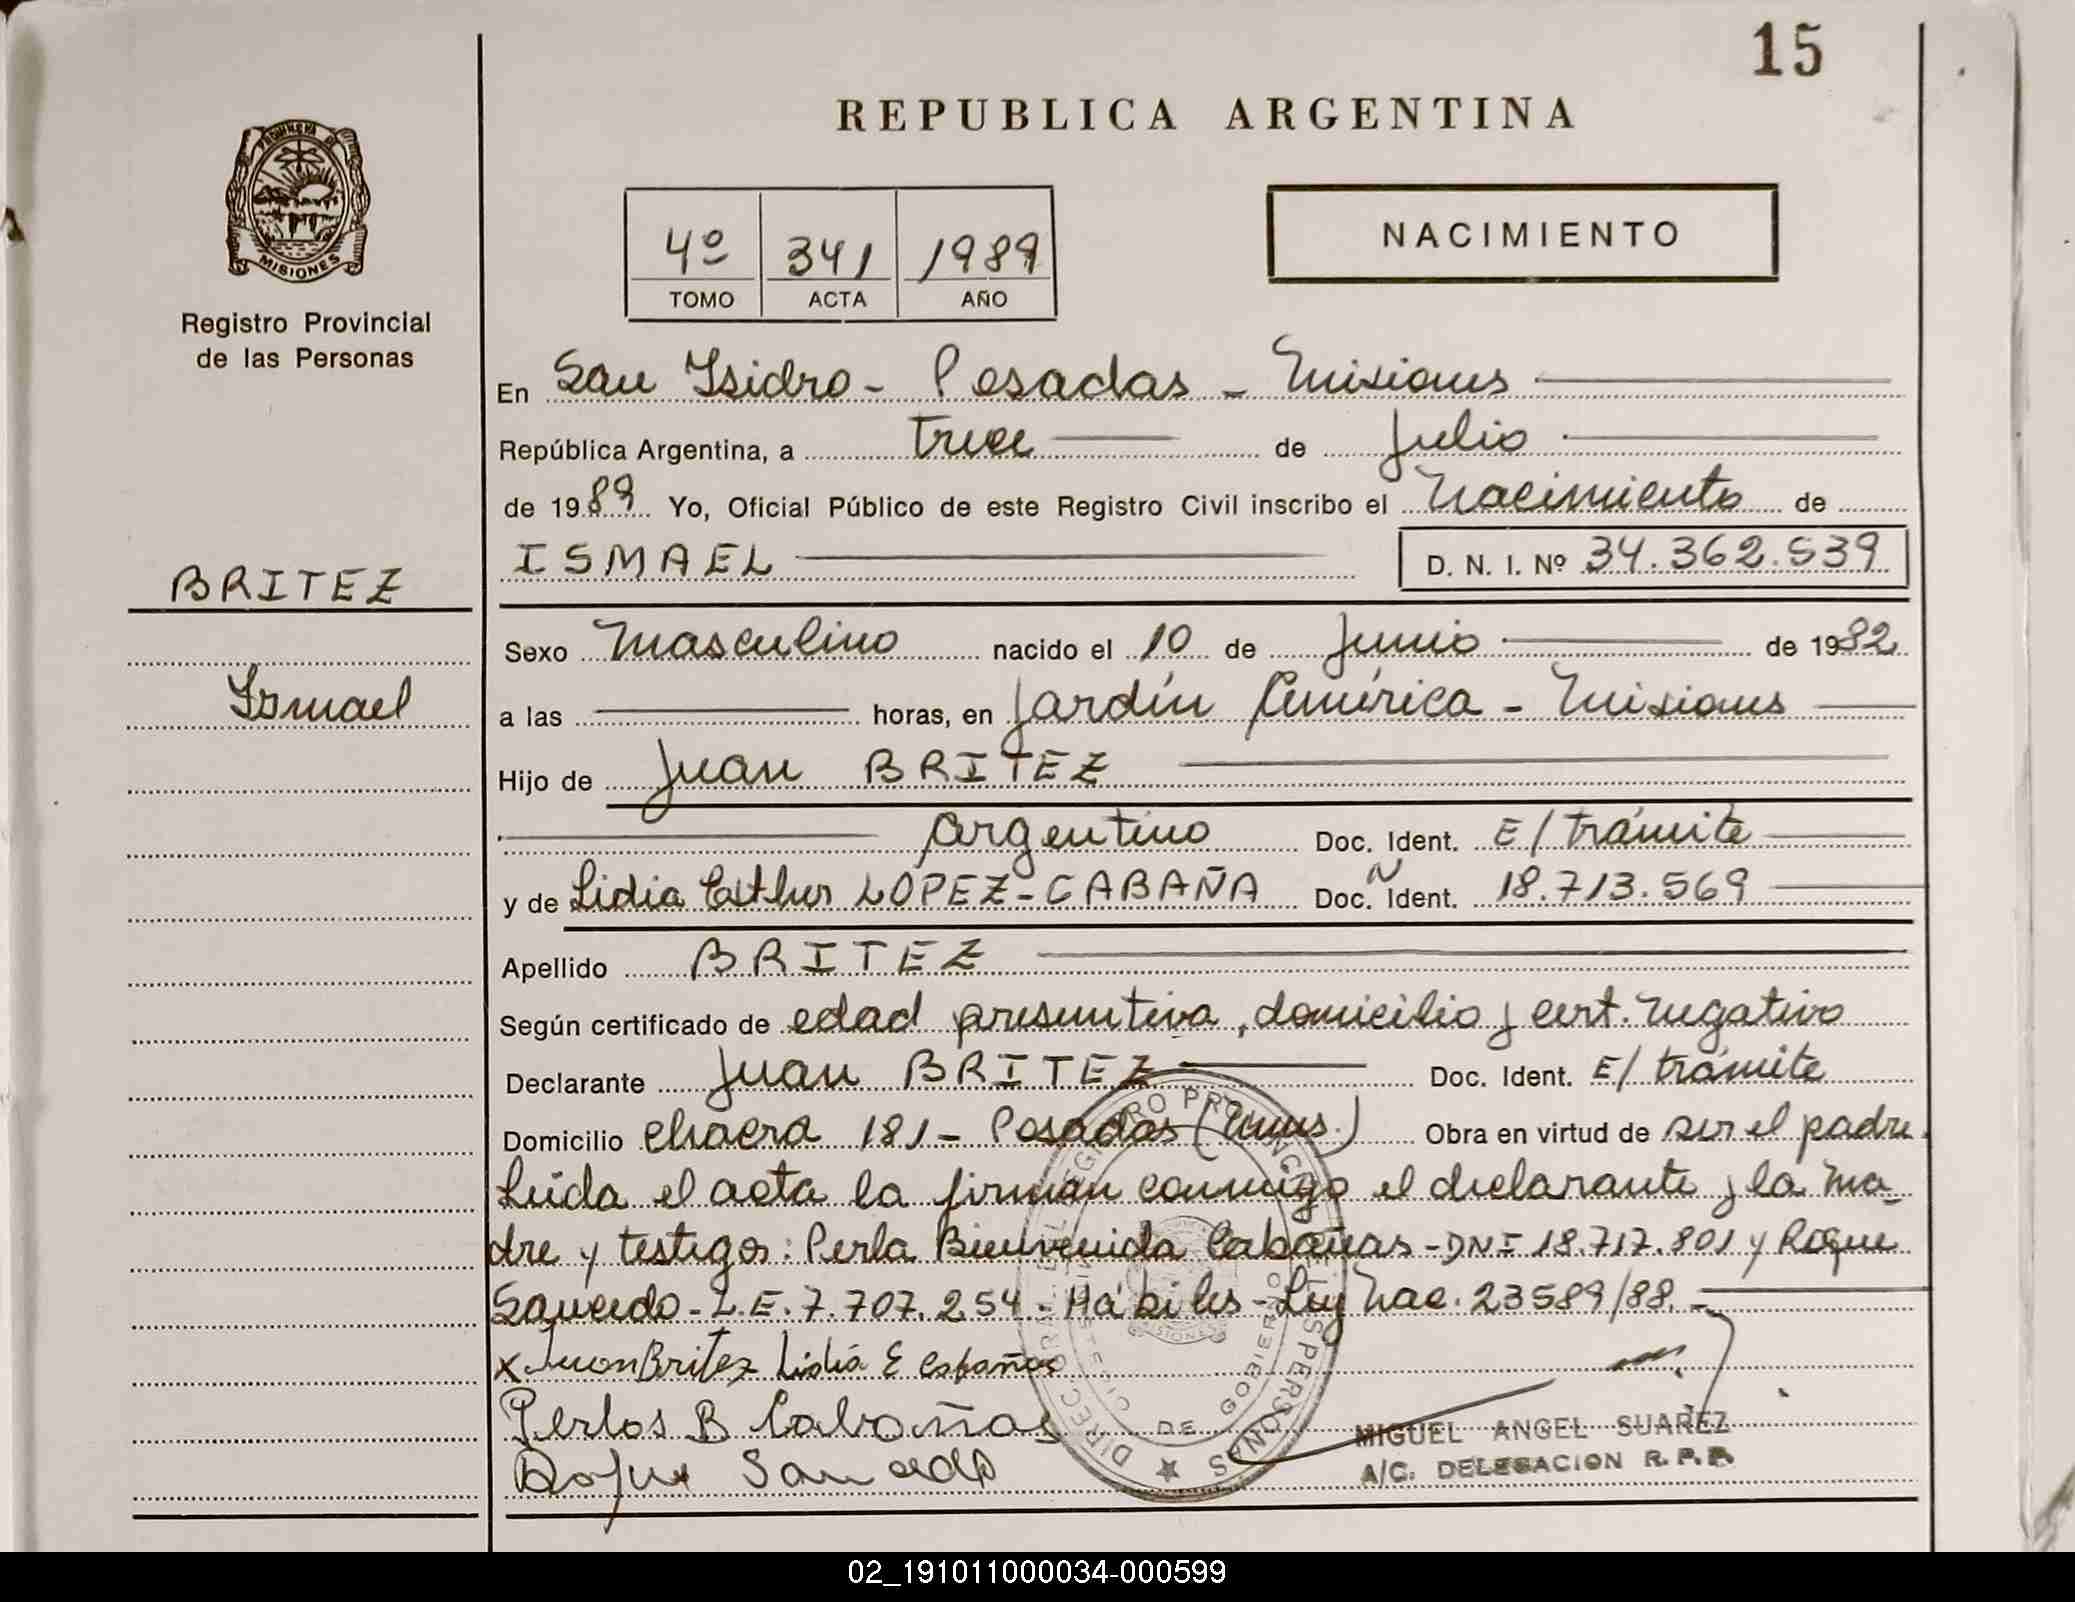 15
REPUBLICA ARGENTINA
PROVINCIA DE
MISIONES
Registro Provincial
de las Personas
4º 341 1989
TOMO ACTA AÑO
NACIMIENTO
En San Isidro - Posadas - Misiones
República Argentina, a Trece de Julio
de 1989 Yo, Oficial Público de este Registro Civil inscribo el Nacimiento de
ISMAEL D. N. I. Nº 34.362.539
BRITEZ
Ismael
Sexo Masculino nacido el 10 de Junio de 1982
a las horas, en Jardín América - Misiones
Hijo de Juan BRITEZ
Argentino Doc. Ident. E/trámite
y de Lidia Esther LOPEZ-CABAÑA Doc. Ident. 18.713.569
Apellido BRITEZ
Según certificado de edad presuntiva, domicilio y cert. negativo
Declarante Juan BRITEZ Doc. Ident. E/trámite
Domicilio chacra 181 - Posadas (Mnes.) Obra en virtud de ser el padre.
Leída el acta la firman conmigo el declarante y la ma-
dre y testigos: Perla Bienvenida Cabañas - DNI 18.717.801 y Roque
Saucedo - L.E. 7.707.254 - Hábiles - Ley Nac. 23589/88. -
x Juan Britez Lidia E Cabañas
Perlas B Cabañas
Roque Saucedo
MIGUEL ANGEL SUAREZ
A/C. DELEGACION R. P. P.
02_191011000034-000599